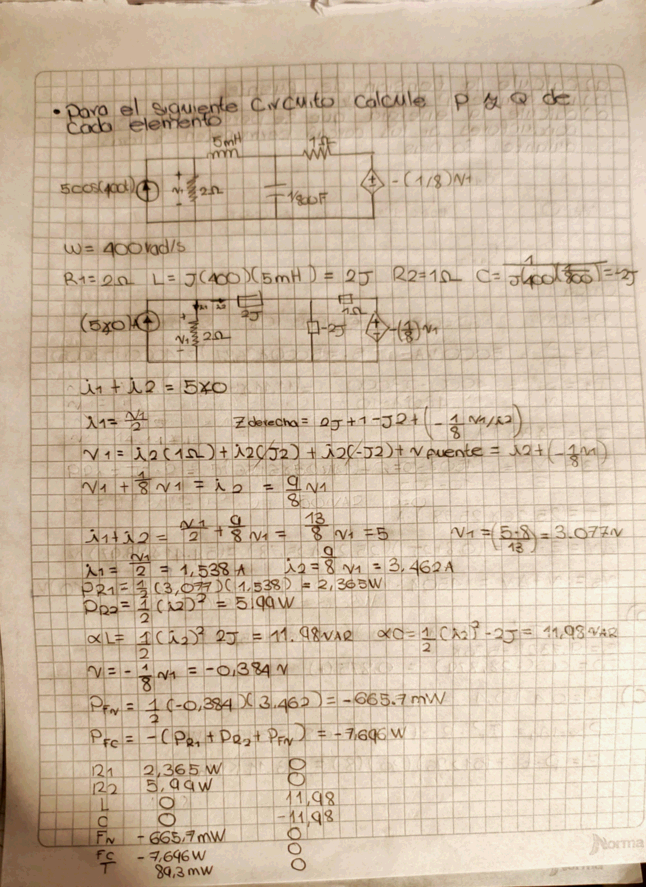 • Para el siguiente Circuito Calcule P y Q de
cada elemento
5mH
1Ω
5cos(400t)
+
V1
-
2Ω
1/800F
-(1/8)V1
W= 400rad/s
R1=2Ω L= J(400)(5mH) = 2J R2=1Ω C= 1/(J(400)(1/800)) = -2J
(5∡0)
+
V1
-
2Ω
i1 i2
2J
-2J
1Ω
-(1/8)V1
i1 + i2 = 5∡0
i1= V1/2 Zderecha= 2J+1-J2+(-1/8 V1/i2)
V1= i2(1Ω)+i2(J2)+i2(-J2)+Vfuente = i2+(-1/8V1)
V1 + 1/8 V1 = i2 = 9/8 V1
i1+i2= V1/2 + 9/8 V1 = 13/8 V1 = 5 V1=(5·8/13)=3.077V
i1= V1/2 = 1,538 A i2= 9/8 V1 = 3.462A
PR1= 1/2 (3,077)(1,538) = 2,365W
PR2= 1/2 (i2)² = 5,99W
QL= 1/2 (i2)² 2J = 11.98VAR QC= 1/2 (i2)² -2J = 11,98VAR
V= - 1/8 V1 = -0,384V
PFV= 1/2 (-0,384)(3.462) = -665.7mW
PFC = -(PR1+PR2+PFV) = -7,696W
R1 2,365W 0
R2 5,99W 0
L 0 11,98
C 0 -11,98
FV -665,7mW 0
FC -7,696W 0
T 89,3mW 0
Norma